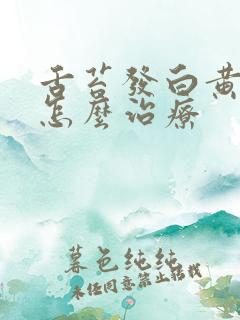 舌苔發白黃
怎麼治療
暮色純純
未经同意禁止转载